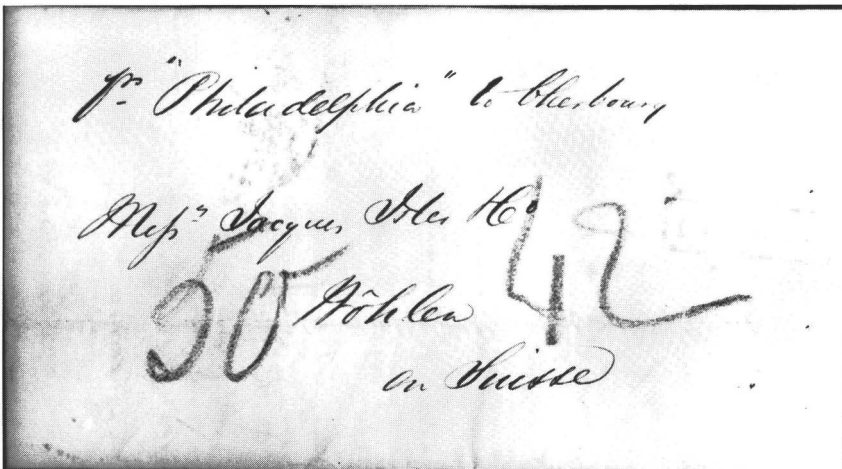 pr "Philadelphia" to Cherbourg
Messrs Jacques Isler & Co
50 Wöhlen 42
en Suisse